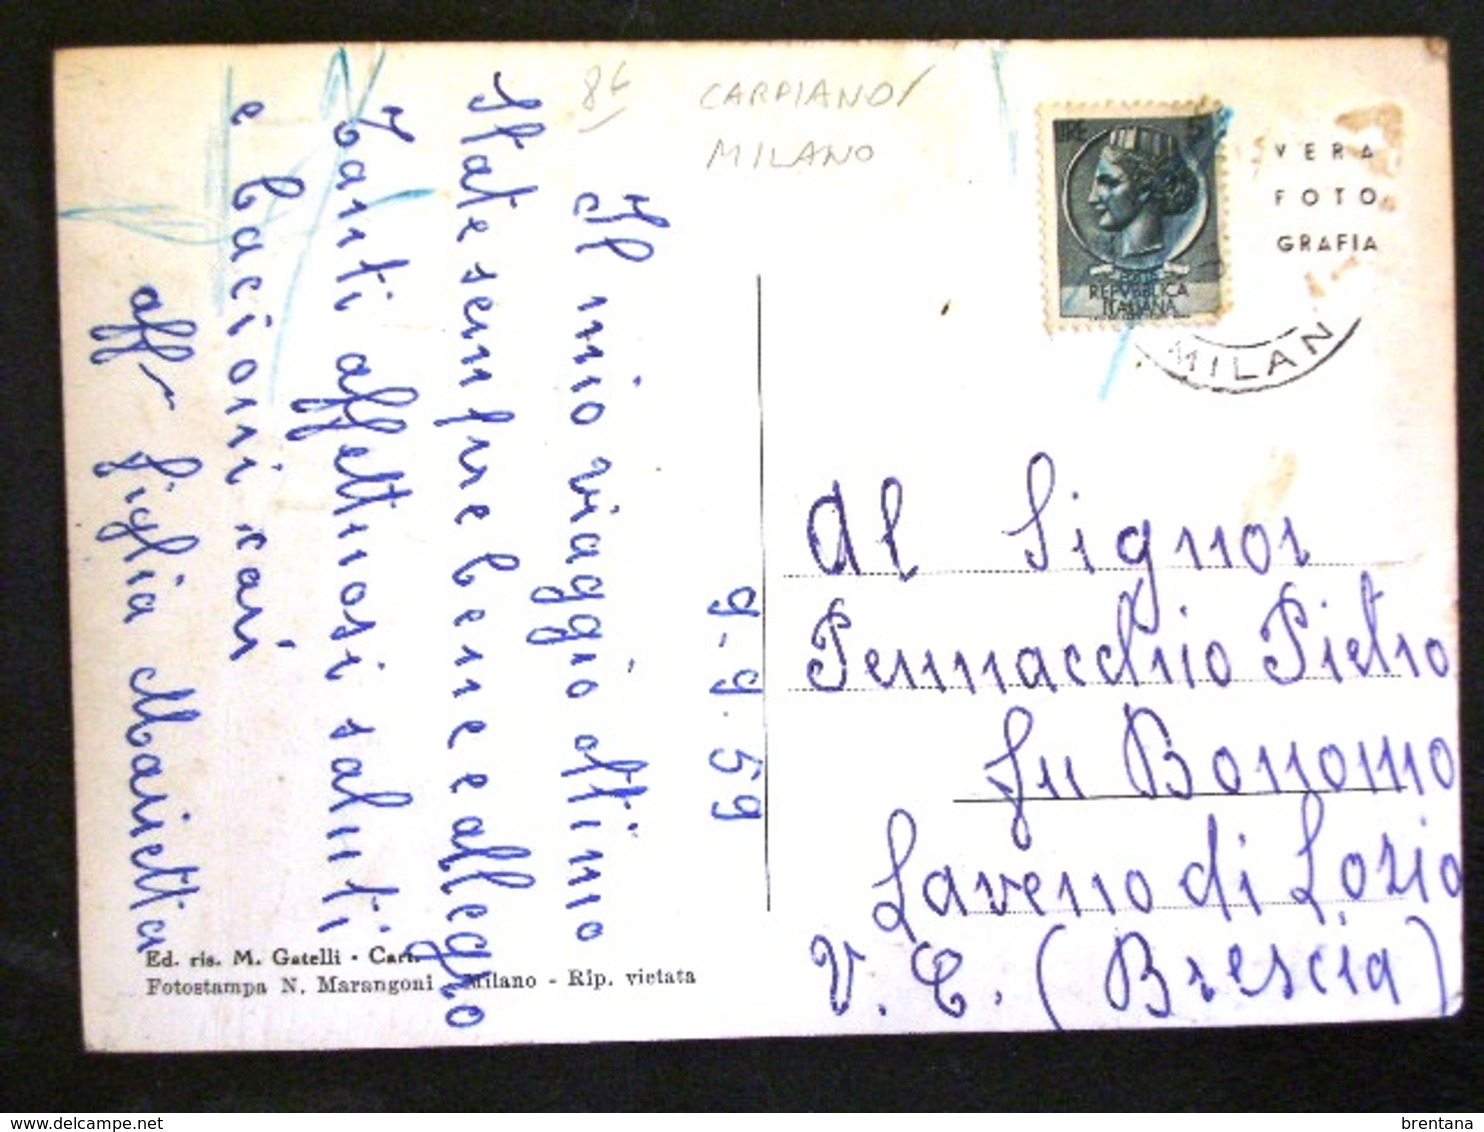 86 CARPIANO/
MILANO
LIRE 5
REPVBBLICA
ITALIANA
VERA
FOTO
GRAFIA
MILAN
9-9-59
Il mio viaggio ottimo
State sempre bene e allegro
Tanti affettuosi saluti
e bacioni cari
aff figlia Marietta
Al Signor
Pennacchio Pietro
fu Bonomo
Laveno di Lozio
V. C. (Brescia)
Ed. ris. M. Gatelli - Car
Fotostampa N. Marangoni - Milano - Rip. vietata
brentana